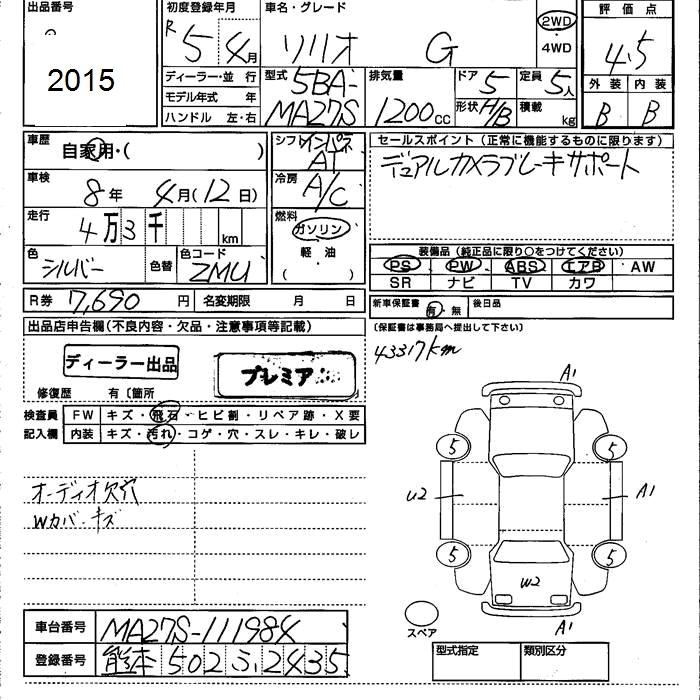 出品番号
2015
初度登録年月
R 5 4月
車名・グレード
ソリオ G
2WD
4WD
評価点
4.5
外装 内装
B B
ディーラー・並行
モデル年式 年
ハンドル 左・右
型式 5BA-
MA27S
排気量
1200cc
ドア 5
形状 H/B
定員 5人
積載 kg
車歴
自家用・( )
車検
8年 4月(12日)
走行
4万3千 km
色
シルバー 色替
色コード
ZMU
シフト インパネ
AT
冷房
A/C
燃料
ガソリン
軽・油
( )
セールスポイント(正常に機能するものに限ります)
デュアルカメラブレーキサポート
装備品(純正品に限り○をつけてください)
PS PW ABS エアB AW
SR ナビ TV カワ
R券 7,690円 名変期限 月 日
新車保証書 有・無 後日品
(保証書は事務局へ提出して下さい)
43317km
出品店申告欄(不良内容・欠品・注意事項等記載)
ディーラー出品
プレミア
修復歴 有〔箇所
検査員 FW キズ・飛石・ヒビ割・リペア跡・X要
記入欄 内装 キズ・汚れ・コゲ・穴・スレ・キレ・破レ
オーディオ欠穴
Wカバーキズ
A1
5 5
U2 A1
5 5
W2
A1
スペア
車台番号 MA27S-111984
登録番号 熊本 502 ふ 2435
型式指定 類別区分